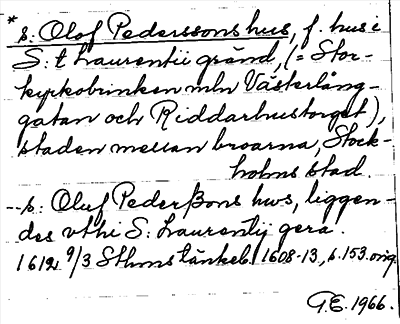 * s: Olof Pederssons hus, f. hus i
S:t Laurentii gränd, (= Stor-
kyrkobrinken mln Västerlång-
gatan och Riddarhustorget),
staden mellan broarna, Stock-
holms stad.
-- s: Oluf Pederßons hws, liggen-
des vthi S: Laurentij gera.
1612 9/3 Sthms tänkeb. 1608-13, s. 153. orig.
G.E. 1966.